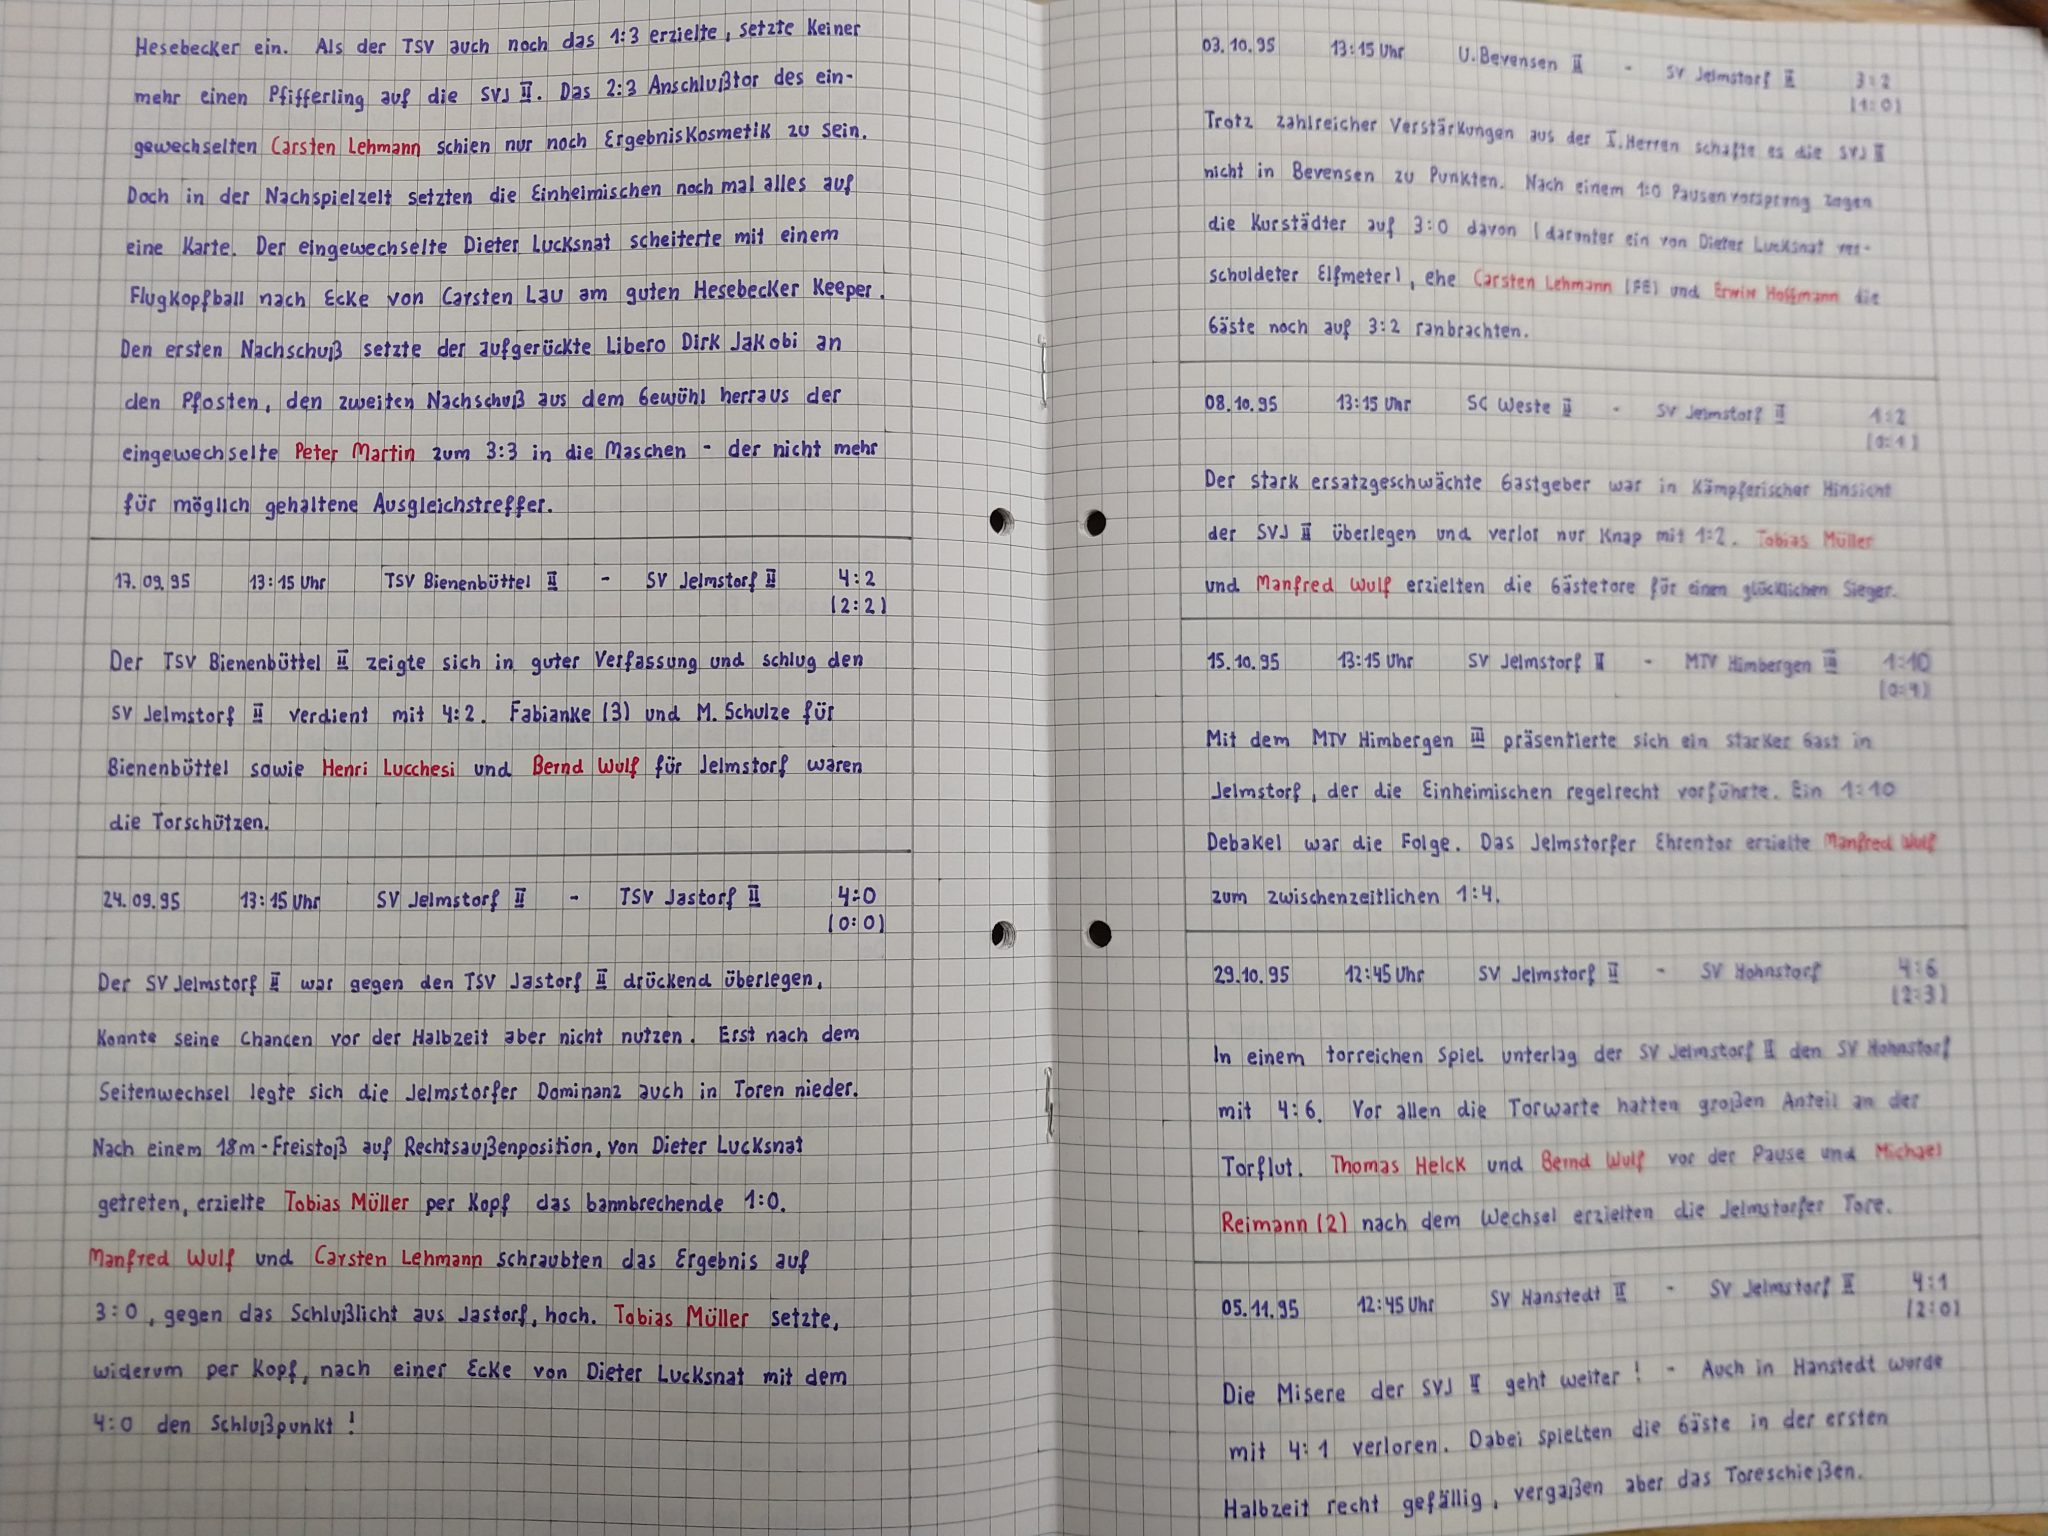 Hesebecker ein. Als der TSV auch noch das 1:3 erzielte, setzte Keiner
mehr einen Pfifferling auf die SVJ II. Das 2:3 Anschlußtor des ein-
gewechselten Carsten Lehmann schien nur noch Ergebniskosmetik zu sein.
Doch in der Nachspielzeit setzten die Einheimischen noch mal alles auf
eine Karte. Der eingewechselte Dieter Lucksnat scheiterte mit einem
Flugkopfball nach Ecke von Carsten Lau am guten Hesebecker Keeper.
Den ersten Nachschuß setzte der aufgerückte Libero Dirk Jakobi an
den Pfosten, den zweiten Nachschuß aus dem Gewühl herraus der
eingewechselte Peter Martin zum 3:3 in die Maschen - der nicht mehr
für möglich gehaltene Ausgleichstreffer.
17.09.95 13:15 Uhr TSV Bienenbüttel II - SV Jelmstorf II 4:2
(2:2)
Der TSV Bienenbüttel II zeigte sich in guter Verfassung und schlug den
SV Jelmstorf II verdient mit 4:2. Fabianke (3) und M. Schulze für
Bienenbüttel sowie Henri Lucchesi und Bernd Wulf für Jelmstorf waren
die Torschützen.
24.09.95 13:15 Uhr SV Jelmstorf II - TSV Jastorf II 4:0
(0:0)
Der SV Jelmstorf II war gegen den TSV Jastorf II drückend überlegen,
Konnte seine Chancen vor der Halbzeit aber nicht nutzen. Erst nach dem
Seitenwechsel legte sich die Jelmstorfer Dominanz auch in Toren nieder.
Nach einem 18m-Freistoß auf Rechtsaußenposition, von Dieter Lucksnat
getreten, erzielte Tobias Müller per Kopf das bannbrechende 1:0.
Manfred Wulf und Carsten Lehmann schraubten das Ergebnis auf
3:0, gegen das Schlußlicht aus Jastorf, hoch. Tobias Müller setzte,
widerum per Kopf, nach einer Ecke von Dieter Lucksnat mit dem
4:0 den Schlußpunkt!
03.10.95 13:15 Uhr U.Bevensen II - SV Jelmstorf II 3:2
(1:0)
Trotz zahlreicher Verstärkungen aus der I. Herren schafte es die SVJ II
nicht in Bevensen zu Punkten. Nach einem 1:0 Pausenvorsprung zogen
die Kurstädter auf 3:0 davon (darunter ein von Dieter Lucksnat ver-
schuldeter Elfmeter), ehe Carsten Lehmann (FE) und Erwin Hoffmann die
Gäste noch auf 3:2 ranbrachten.
08.10.95 13:15 Uhr SC Weste II - SV Jelmstorf II 1:2
(0:1)
Der stark ersatzgeschwächte Gastgeber war in Kämpferischer Hinsicht
der SVJ II überlegen und verlor nur Knap mit 1:2. Tobias Müller
und Manfred Wulf erzielten die Gästetore für einen glücklichen Sieger.
15.10.95 13:15 Uhr SV Jelmstorf II - MTV Himbergen III 1:10
(0:4)
Mit dem MTV Himbergen III präsentierte sich ein starker Gast in
Jelmstorf, der die Einheimischen regelrecht vorführte. Ein 1:10
Debakel war die Folge. Das Jelmstorfer Ehrentor erzielte Manfred Wulf
zum zwischenzeitlichen 1:4.
29.10.95 12:45 Uhr SV Jelmstorf II - SV Hohnstorf 4:6
(2:3)
In einem torreichen Spiel unterlag der SV Jelmstorf II den SV Hohnstorf
mit 4:6. Vor allen die Torwarte hatten großen Anteil an der
Torflut. Thomas Helck und Bernd Wulf vor der Pause und Michael
Reimann (2) nach dem Wechsel erzielten die Jelmstorfer Tore.
05.11.95 12:45 Uhr SV Hanstedt II - SV Jelmstorf II 4:1
(2:0)
Die Misere der SVJ II geht weiter! - Auch in Hanstedt wurde
mit 4:1 verloren. Dabei spielten die Gäste in der ersten
Halbzeit recht gefällig, vergaßen aber das Toreschießen.